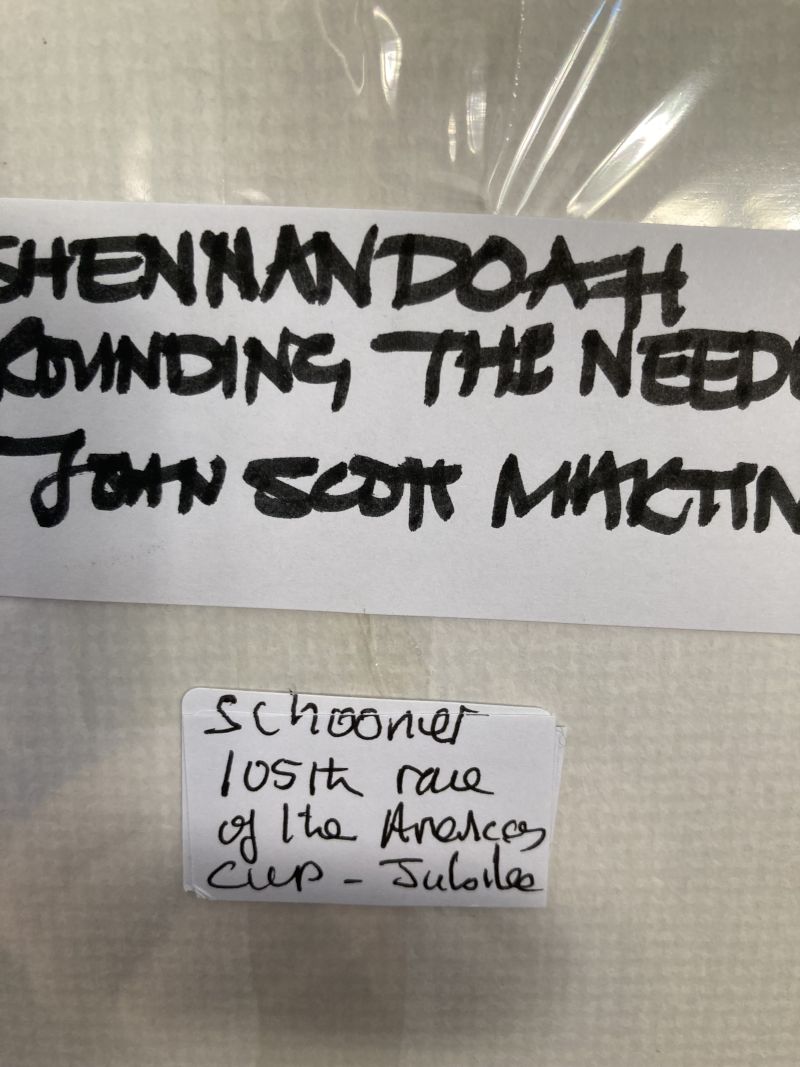 SHENNANDOAH
ROUNDING THE NEEDL
JOHN SCOTT MARTIN
Schooner
105th race
of the Americas
cup - Jubilee